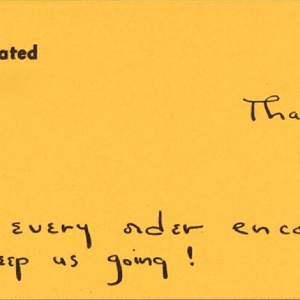 ated
Tha
every order enco
eep us going!